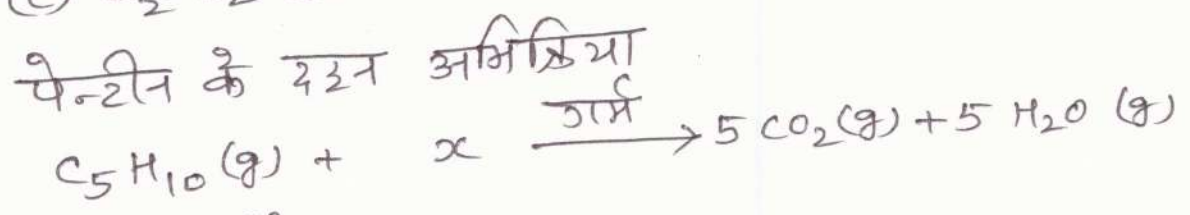 (c) 2 2
पेन्टीन के दहन अभिक्रिया
C₅H₁₀(g) + x गर्म → 5 CO₂(g) + 5 H₂O (g)